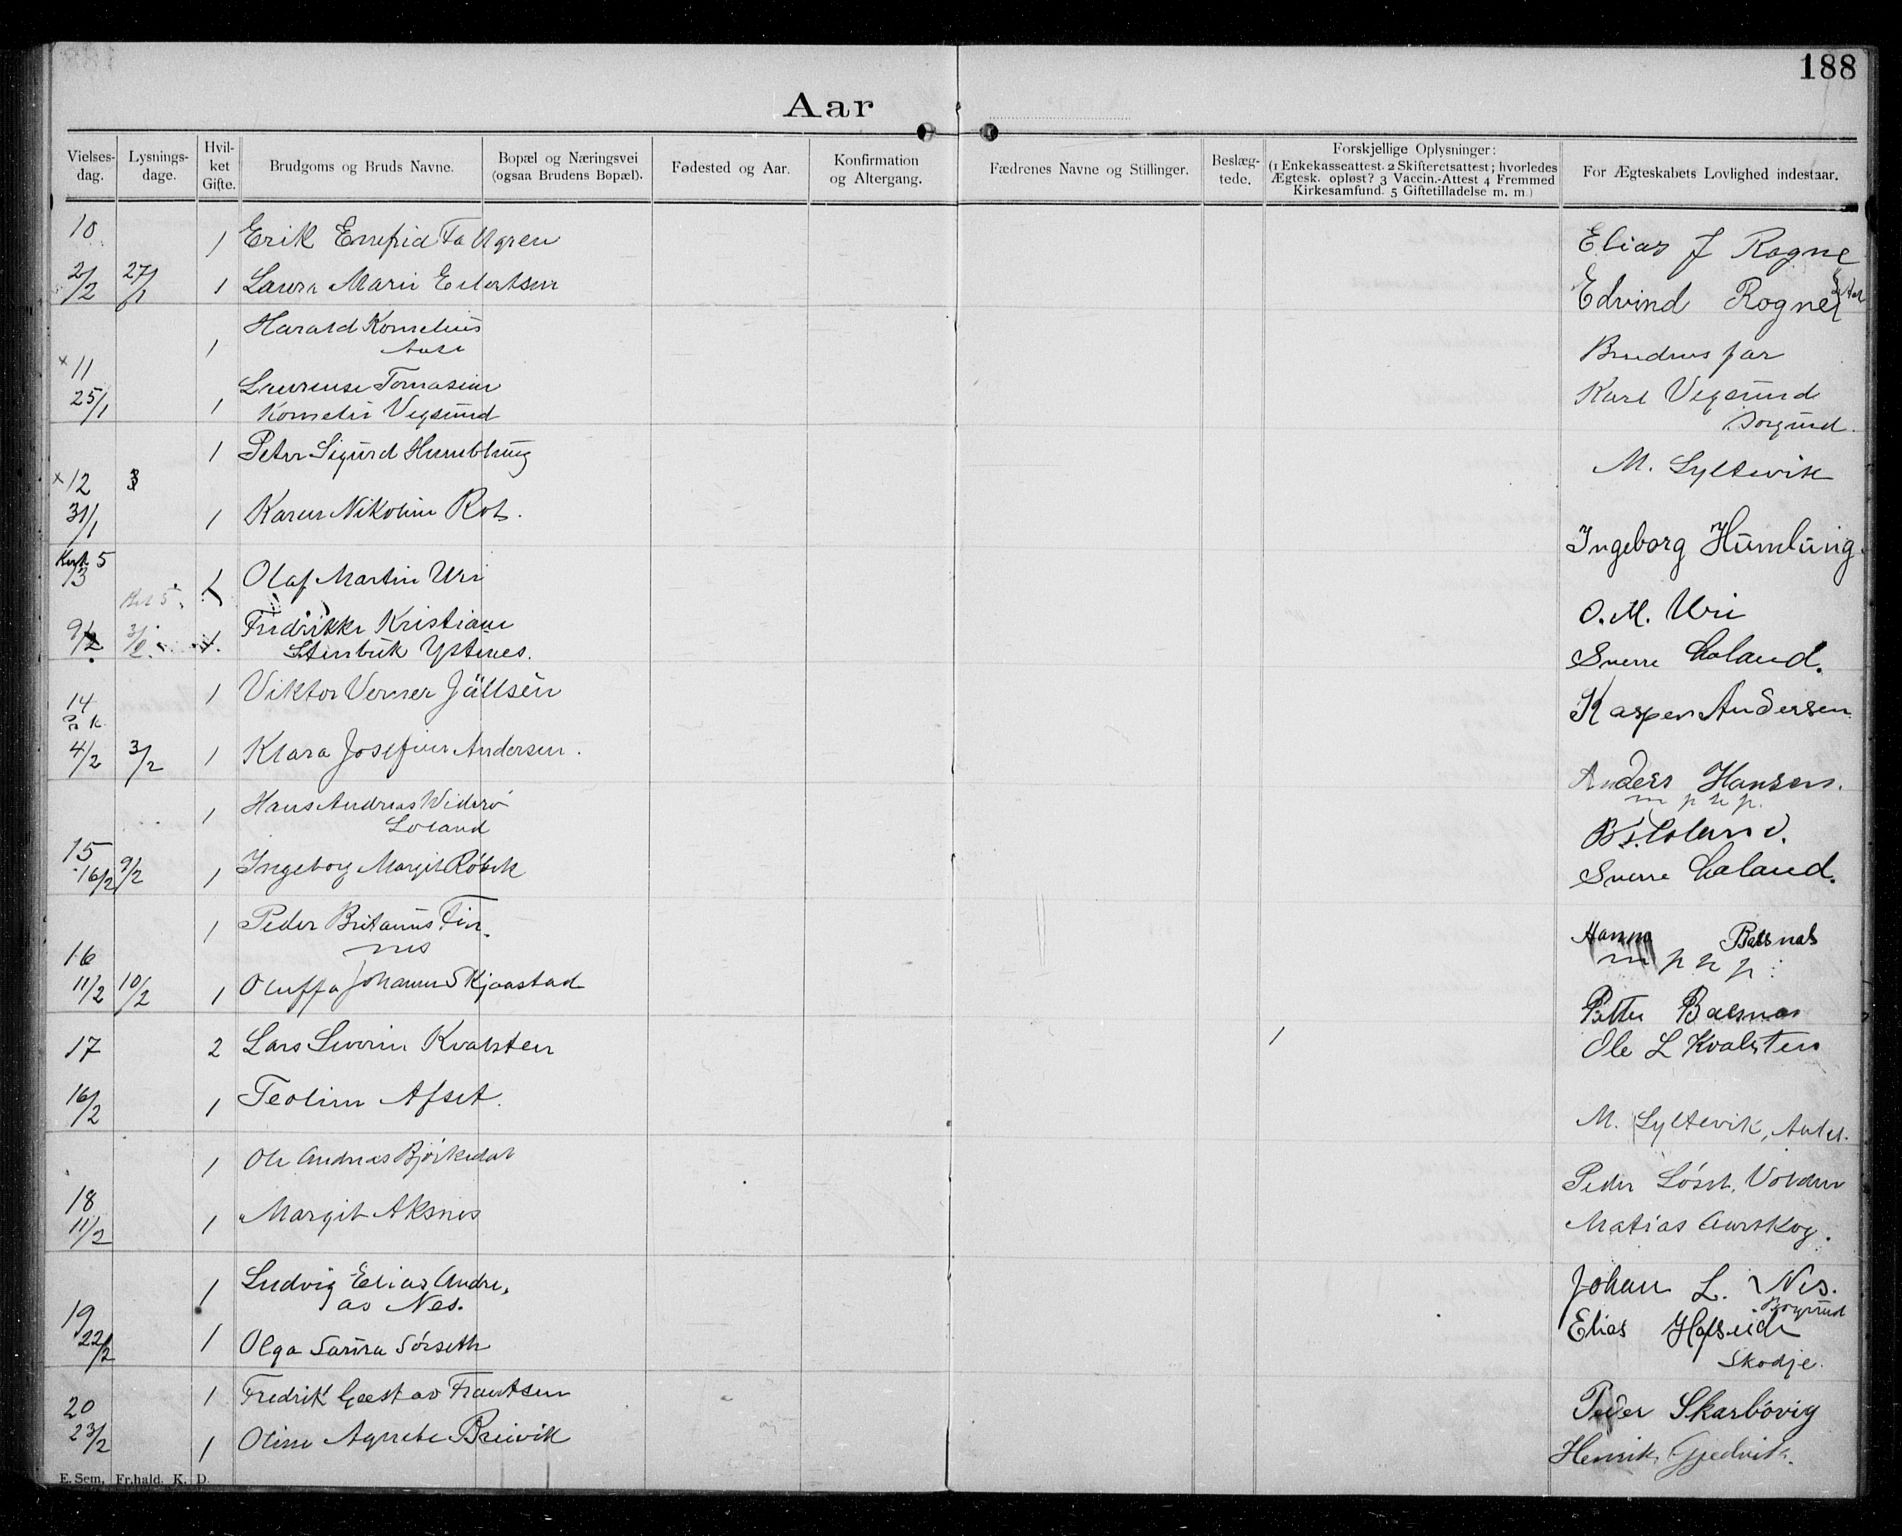 188
Aar
Vielses-dag. Lysnings-dage. Hvil-ket Gifte. Brudgoms og Bruds Navne. Bopæl og Næringsvei (ogsaa Brudens Bopæl). Fødested og Aar. Konfirmation og Altergang. Fædrenes Navne og Stillinger. Beslæg-tede. Forskjellige Oplysninger: (1 Enkekasseattest. 2 Skifteretsattest; hvorledes Ægtesk. opløst? 3 Vaccin.-Attest 4 Fremmed Kirkesamfund. 5 Giftetilladelse m. m.) For Ægteskabets Lovlighed indestaar.
10 1 Erik Enefrid Tallgren Elias J Rogne
2/2 27/1 1 Laura Marie Eilertsen Edvind Rogne
1 Harald Kornelius
Aase Brudens far
x 11
25/1 1 Laurense Tomasine Karl Vegsund
Kornelie Vegsund Borgund.
1 Peter Sigurd Humblung M. Syltevik
x 12 3
31/1 1 Karen Nikoline Rot. Ingeborg Humlung.
13 1 Olaf Martin Uri O. M. Uri
9/2 1. Fredrikke Kristiane
Stenbuk Ystenes. Sverre Loland.
14 1 Viktor Verner Jällsén Kasper Andersen
4/2 3/2 1 Klara Josefine Andersen. Anders Hansen.
m p n p.
1 Hans Andreas Viderö
Loland B. Loland.
15
16/2 9/2 1 Ingeborg Margit Røbek Sverre Loland.
1 Peder Britanus Fin-
nes Hanna Balsnes
16 m p n p.
11/2 10/2 1 Oluffa Johanne Skjaastad Petter Balsnes
17 2 Lars Severin Kvalsten 1 Ole L Kvalsten
16/2 1 Teoline Afset. M. Syltevik, Aales.
1 Ole Andreas Bjørkedal Peder Løset, Volden
18
11/2 1 Margit Aksnes Matias Aurskog.
1 Ludvig Elias Andre-
as Nes. Johan L. Nes.
Borgund
19
22/2 1 Olga Saura Sørseth Elias Hofseide
Skodje.
20 1 Fredrik Gustav Frantsen Peder Skarbövig
23/2 1 Oline Agnete Breivik Henrik Gjedvik.
E. Sem, Fr.hald. K. D.